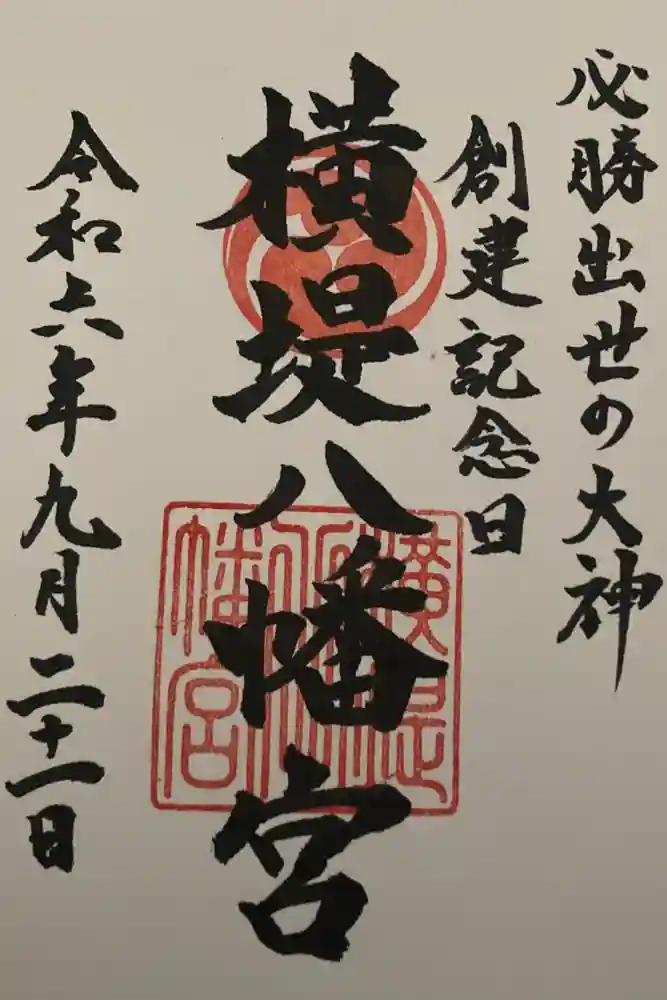 必勝出世の大神
創建記念日
横堤八幡宮
横堤八幡宮
令和六年九月二十一日